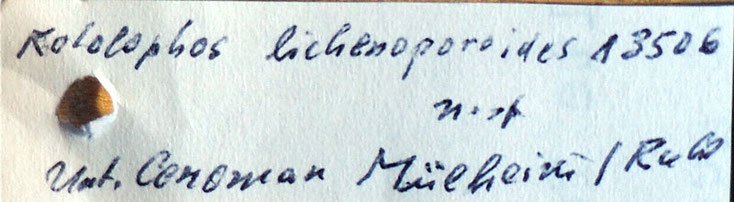 Kololophos lichenoporoides 13506
n. sp.
Unt. Cenoman Mülheim / Ruhr